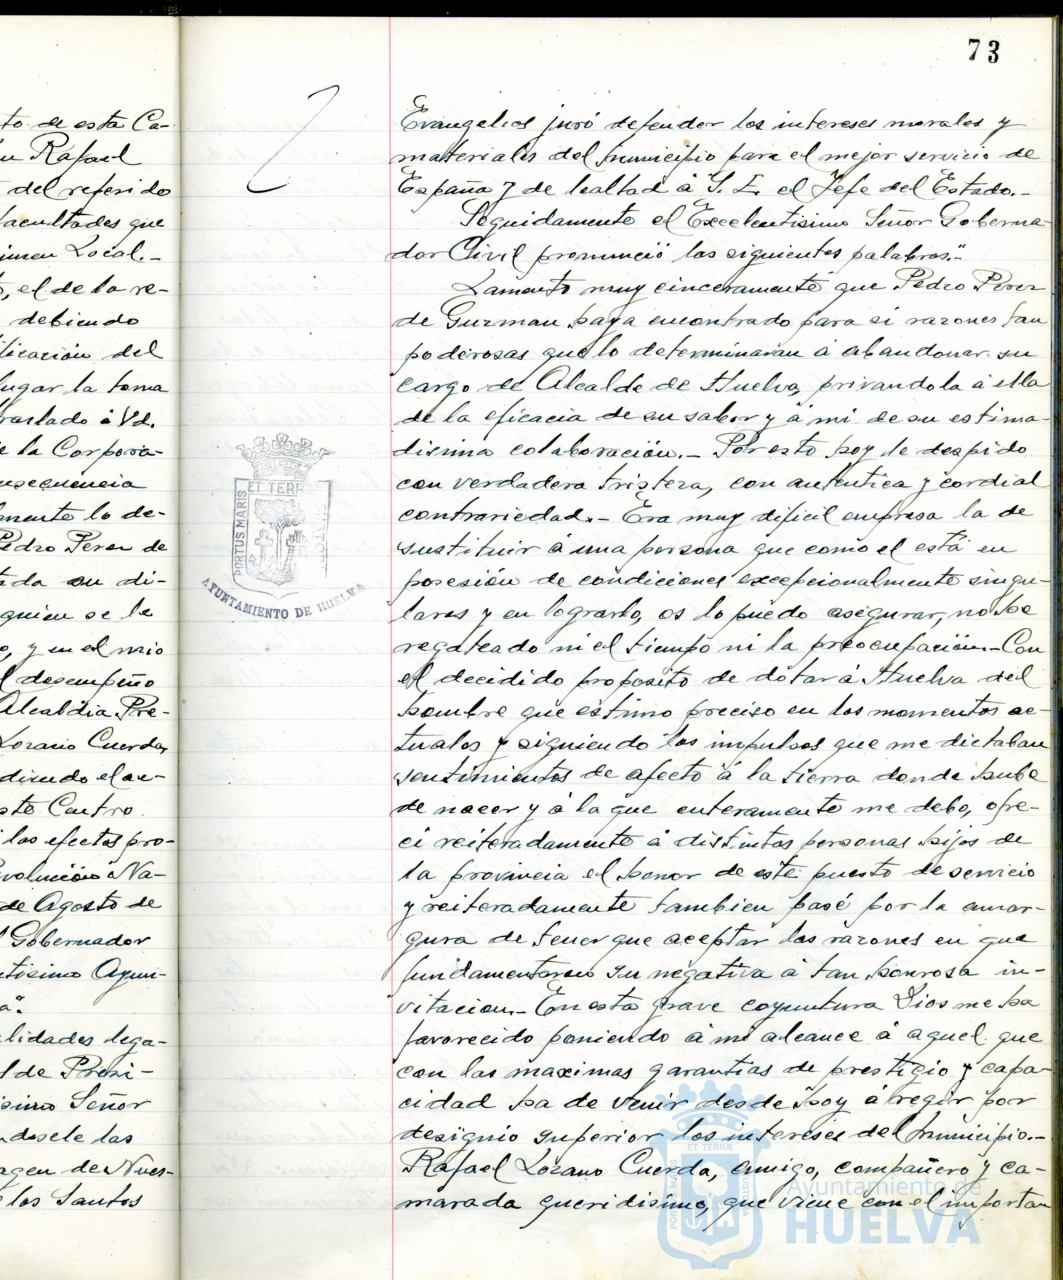 73
to de esta Ca-
n Rafael
del referido
facultades que
imen Local.-
, el de la re-
debiendo
licación del
lugar la toma
traslado á Vd.
e la Corpora-
nsecuencia
mente lo de-
Pedro Perez de
ada su di-
quien se le
o, y en el mio
l desempeño
Alcaldia Pre-
Lozano Cuerda,
diendo el ac-
ste Centro.
los efectos pro-
volución Na-
de Agosto de
l Gobernador
ntisimo Ayun-
a".
lidades lega-
lde Presi-
simo Señor
ndosele las
agen de Nues-
los Santos
Evangelios juró defender los intereses morales y
materiales del municipio para el mejor servicio de
España y de lealtad á S. E. el Jefe del Estado.-
Seguidamente el Excelentisimo Señor Goberna-
dor Civil pronunció las siguientes palabras."
Lamento muy sinceramente que Pedro Perez
de Guzman haya encontrado para si razones tan
poderosas que lo determinaran á abandonar su
cargo de Alcalde de Huelva, privandola á ella
de la eficacia de su labor y á mi de su estima-
disima colaboración.- Por esto hoy le despido
con verdadera tristeza, con autentica y cordial
contrariedad.- Era muy dificil empresa la de
sustituir á una persona que como el está en
posesión de condiciones excepcionalmente singu-
lares y en lograrlo, os lo puedo asegurar, no he
regateado ni el tiempo ni la preocupación.- Con
el decidido proposito de dotar á Huelva del
hombre que estimo preciso en los momentos ac-
tuales y siguiendo los impulsos que me dictaban
sentimientos de afecto á la tierra donde hube
de nacer y á la que enteramente me debo, ofre-
ci reiteradamente á distintas personas hijos de
la provincia el honor de este puesto de servicio
y reiteradamente tambien pasé por la amar-
gura de tener que aceptar las razones en que
fundamentaron su negativa á tan honrosa in-
vitacion.- En esta grave coyuntura Dios me ha
favorecido poniendo á mi alcance á aquel que
con las maximas garantias de prestigio y capa-
cidad ha de venir desde hoy á regir por
designio superior los intereses del municipio.-
Rafael Lozano Cuerda, amigo, compañero y ca-
marada queridisimo, que viene con el importan
PORTUS MARIS
ET TERRÆ
CUSTODIA
AYUNTAMIENTO DE HUELVA
Ayuntamiento de
HUELVA